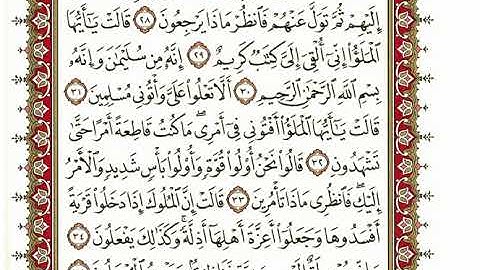 إِلَيْهِمْ ثُمَّ تَوَلَّ عَنْهُمْ فَٱنظُرْ مَاذَا يَرْجِعُونَ ٢٨ قَالَتْ يَٰٓأَيُّهَا
ٱلْمَلَؤُا۟ إِنِّىٓ أُلْقِىَ إِلَىَّ كِتَٰبٌ كَرِيمٌ ٢٩ إِنَّهُۥ مِن سُلَيْمَٰنَ وَإِنَّهُۥ
بِسْمِ ٱللَّهِ ٱلرَّحْمَٰنِ ٱلرَّحِيمِ ٣٠ أَلَّا تَعْلُوا۟ عَلَىَّ وَأْتُونِى مُسْلِمِينَ ٣١
قَالَتْ يَٰٓأَيُّهَا ٱلْمَلَؤُا۟ أَفْتُونِى فِىٓ أَمْرِى مَا كُنتُ قَاطِعَةً أَمْرًا حَتَّىٰ
تَشْهَدُونِ ٣٢ قَالُوا۟ نَحْنُ أُو۟لُوا۟ قُوَّةٍ وَأُو۟لُوا۟ بَأْسٍ شَدِيدٍ وَٱلْأَمْرُ
إِلَيْكِ فَٱنظُرِى مَاذَا تَأْمُرِينَ ٣٣ قَالَتْ إِنَّ ٱلْمُلُوكَ إِذَا دَخَلُوا۟ قَرْيَةً
أَفْسَدُوهَا وَجَعَلُوٓا۟ أَعِزَّةَ أَهْلِهَآ أَذِلَّةً وَكَذَٰلِكَ يَفْعَلُونَ ٣٤